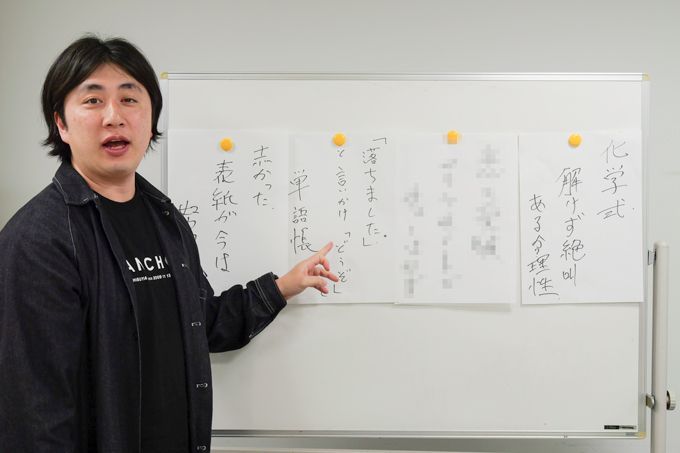 化学式
解けず絶叫
ある理性
「落ちました」
と言いかけ「どうぞ」
単語帳
赤かった
表紙が今は
ANCHO